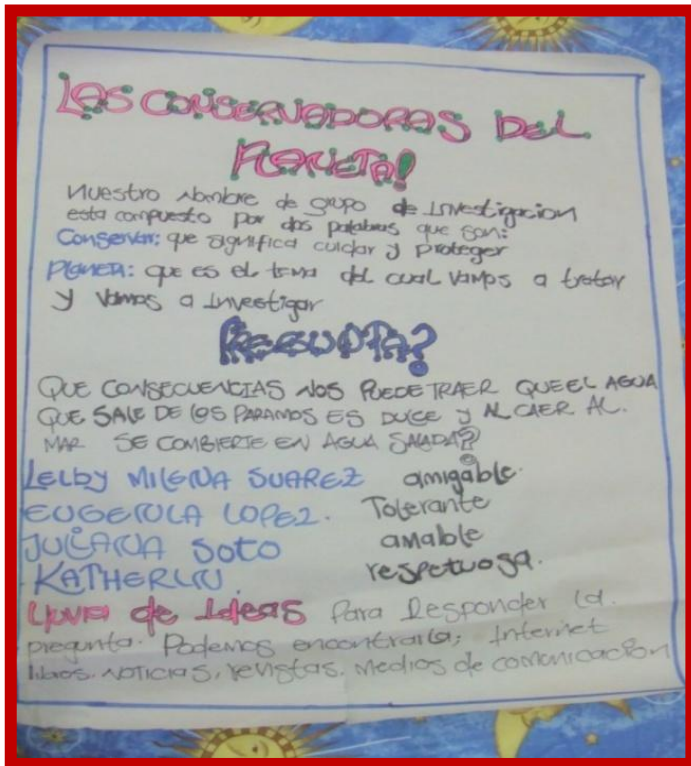 LAS CONSERVADORAS DEL
PLANETA!
Nuestro Nombre de grupo de Investigacion
esta compuesto por dos palabras que son:
Conservar: que significa cuidar y proteger
Planeta: que es el tema del cual vamos a tratar
y vamos a Investigar
PREGUNTA?
QUE CONSECUENCIAS NOS PUEDE TRAER QUE EL AGUA
QUE SALE DE LOS PARAMOS ES DULCE Y AL CAER AL.
MAR SE COMBIERTE EN AGUA SALADA?
LELBY MILENA SUAREZ amigable.
EUGENIA LOPEZ. Tolerante
JULIANA SOTO amable
KATHERLIN. respetuosa.
Lluvia de Ideas Para Responder la.
pregunta. Podemos encontrarla; Internet
libros. NOTICIAS, revistas. Medios de comunicación